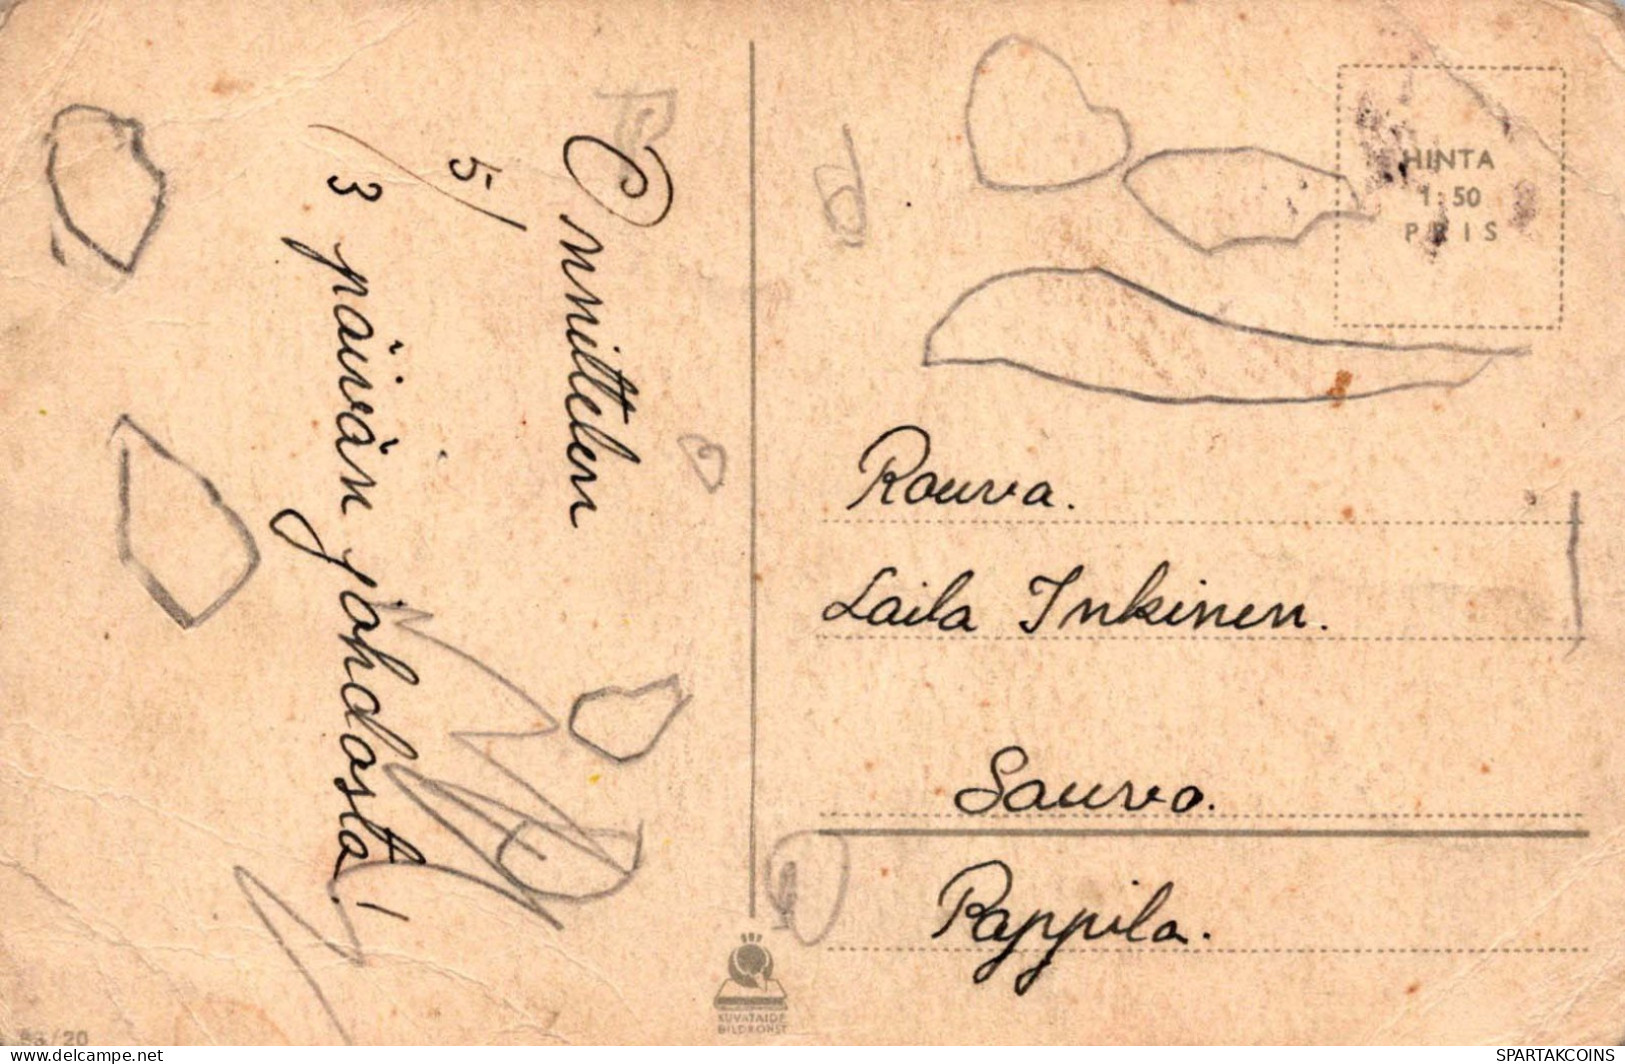 Onnittelen
5/
3 päivän johdosta!
HINTA
1:50
PRIS
Rouva.
Laila Inkinen.
Sauvo.
Pappila.
KUVATAIDE
BILDKONST
/20
SPARTAKCOINS
www.delcampe.net/etm